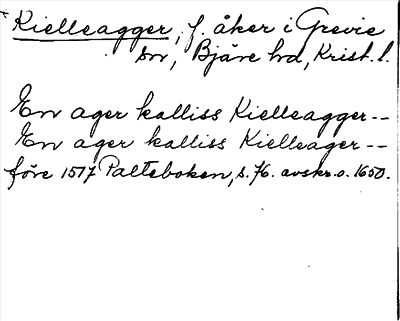 Kielleagger, f. åker i Grevie
sn, Bjäre hd, Krist. l.
En ager kalliss Kielleagger--
En ager kalliss Kielleager--
före 1517 Palteboken, s. 76. avskr. o. 1650.